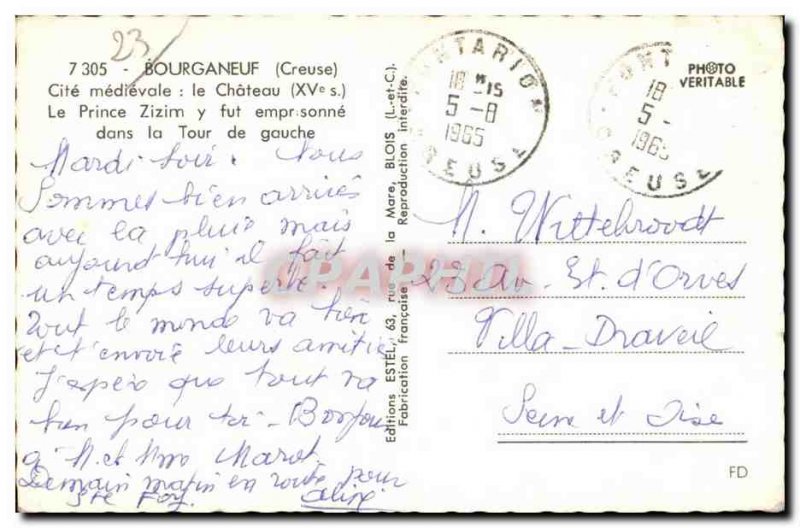 23
7 305 - BOURGANEUF (Creuse)
Cité médiévale : le Château (XVe s.)
Le Prince Zizim y fut emprisonné
dans la Tour de gauche
Mardi soir. Nous
Sommes bien arrivés
avec la pluie mais
aujourd'hui il fait
un temps superbe.
Tout le monde va bien
et t'envoie leurs amitiés
J'espère que tout va
bien pour toi - Bonjour
à M. et Mme Marot
Demain matin en route pour
Ste Foy.
Editions ESTEL, 63, rue de la Mare, BLOIS (L.-et-C.)
Fabrication française — Reproduction interdite.
PONTARION
18 H 15
5 -8
1965
CREUSE
PONT
18
5 -
1965
CREUSE
PHOTO
VERITABLE
M. Wittebroodt
23 Av. Est. d'Orves
Villa - Draveil
Seine et Oise
FD
CPAPHIL